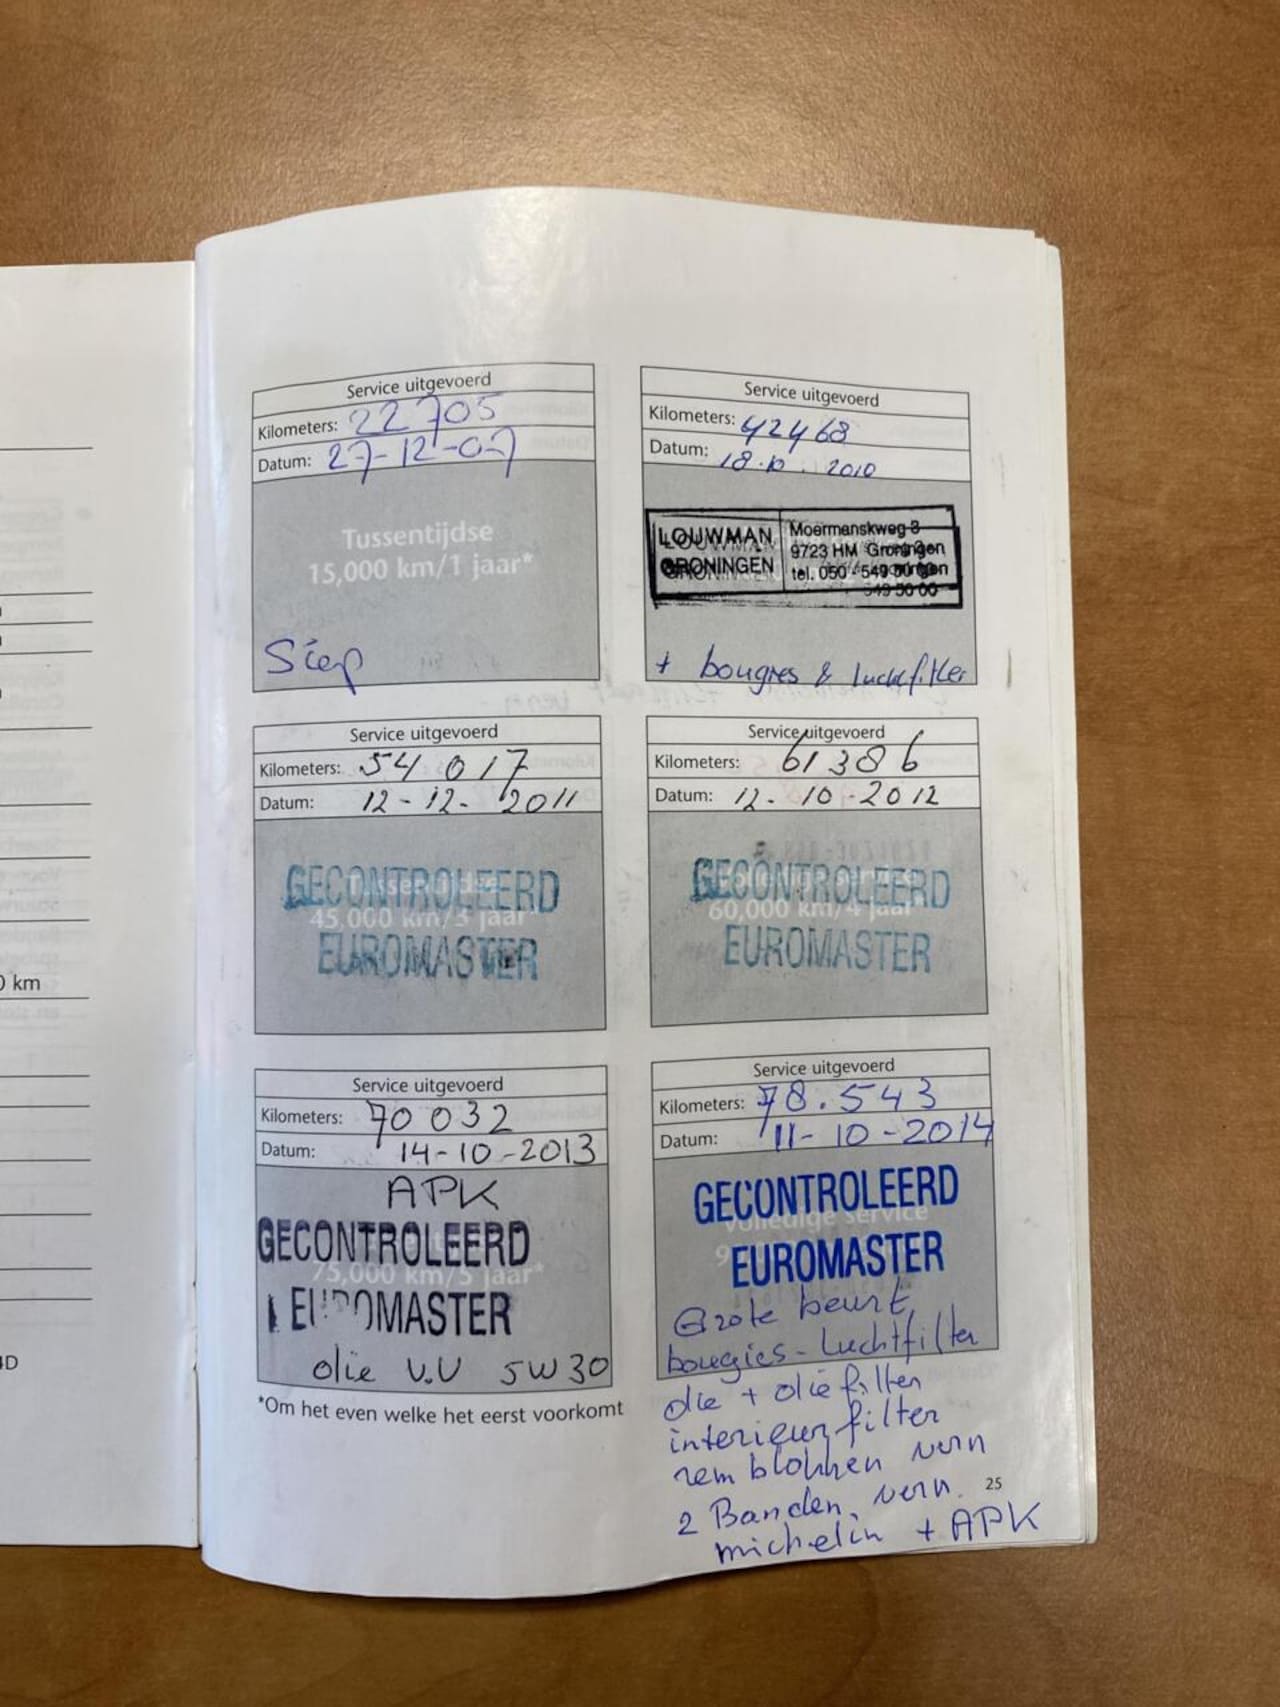 0 km
4D
Service uitgevoerd
Kilometers: 22705
Datum: 27-12-07
Tussentijdse
15,000 km/1 jaar*
Siep
Service uitgevoerd
Kilometers: 42468
Datum: 18.10.2010
LOUWMAN
GRONINGEN
Moermanskweg 3
9723 HM Groningen
tel. 050 - 549 50 00
549 50 00
+ bougies & luchtfilter
Service uitgevoerd
Kilometers: 54 017
Datum: 12-12-2011
Tussentijdse
45,000 km/3 jaar*
GECONTROLEERD
EUROMASTER
Service uitgevoerd
Kilometers: 61386
Datum: 12-10-2012
Volledige service
60,000 km/4 jaar*
GECONTROLEERD
EUROMASTER
Service uitgevoerd
Kilometers: 70 032
Datum: 14-10-2013
APK
GECONTROLEERD
75,000 km/5 jaar*
EUROMASTER
olie V.V 5W30
*Om het even welke het eerst voorkomt
Service uitgevoerd
Kilometers: 78.543
Datum: 11-10-2014
GECONTROLEERD
Volledige service
EUROMASTER
Grote beurt
bougies - Luchtfilter
olie + oliefilter
interieurfilter
remblokken vern
2 Banden vern.
michelin + APK
25